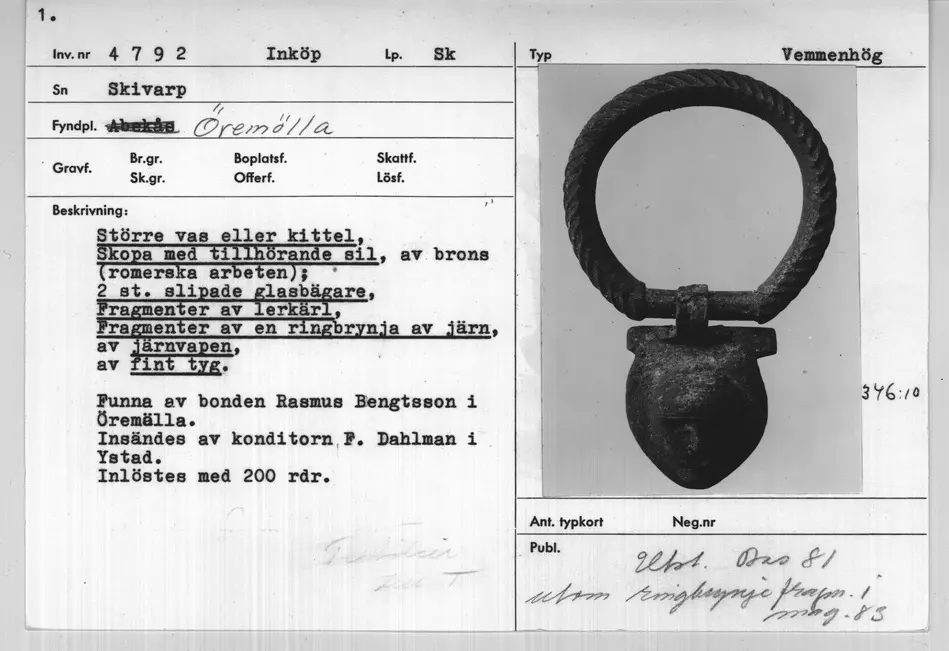 1.
Inv. nr 4 7 9 2 Inköp Lp. Sk
Sn Skivarp
Fyndpl. Abekås Öremölla
Gravf. Br.gr. Boplatsf. Skattf.
Sk.gr. Offerf. Lösf.
Beskrivning:
Större vas eller kittel,
Skopa med tillhörande sil, av brons
(romerska arbeten);
2 st. slipade glasbägare,
Fragmenter av lerkärl,
Fragmenter av en ringbrynja av järn,
av järnvapen,
av fint tyg.
Funna av bonden Rasmus Bengtsson i
Öremälla.
Insändes av konditorn F. Dahlman i
Ystad.
Inlöstes med 200 rdr.
Typ Vemmenhög
346:10
Ant. typkort Neg.nr
Publ.
Utst. 81
utom ringbrynje fragm. i
mag. 83